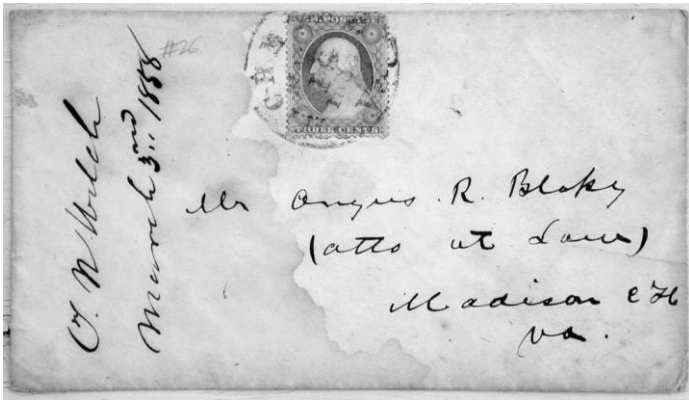 O. N. Welch
March 3rd 1858
#26
U.S. POSTAGE
THREE CENTS
Mr Angus . R. Blakey
(atto at Law)
Madison C H
Va.